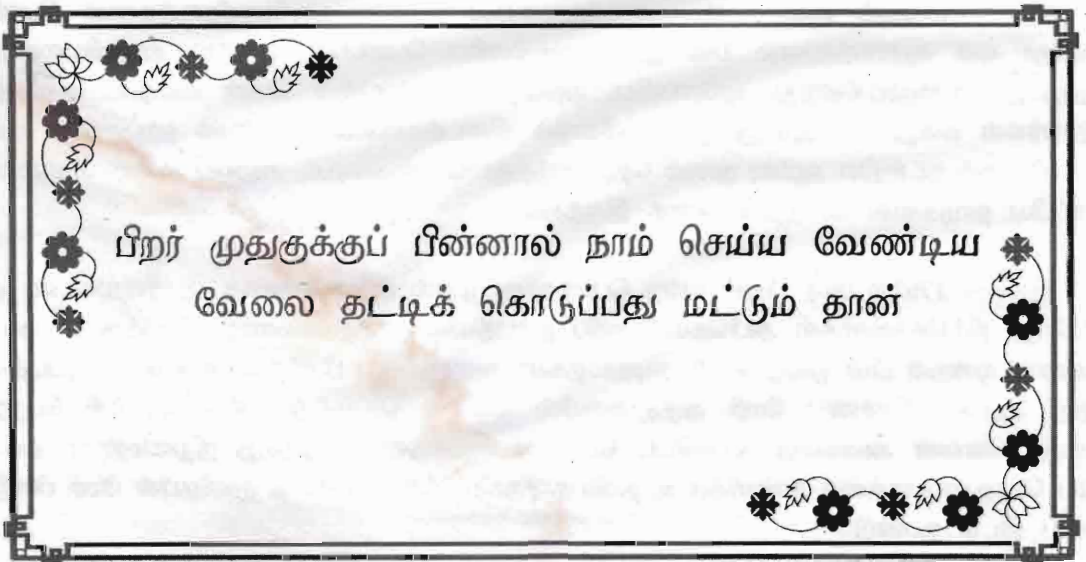 பிறர் முதுகுக்குப் பின்னால் நாம் செய்ய வேண்டிய
வேலை தட்டிக் கொடுப்பது மட்டும் தான்